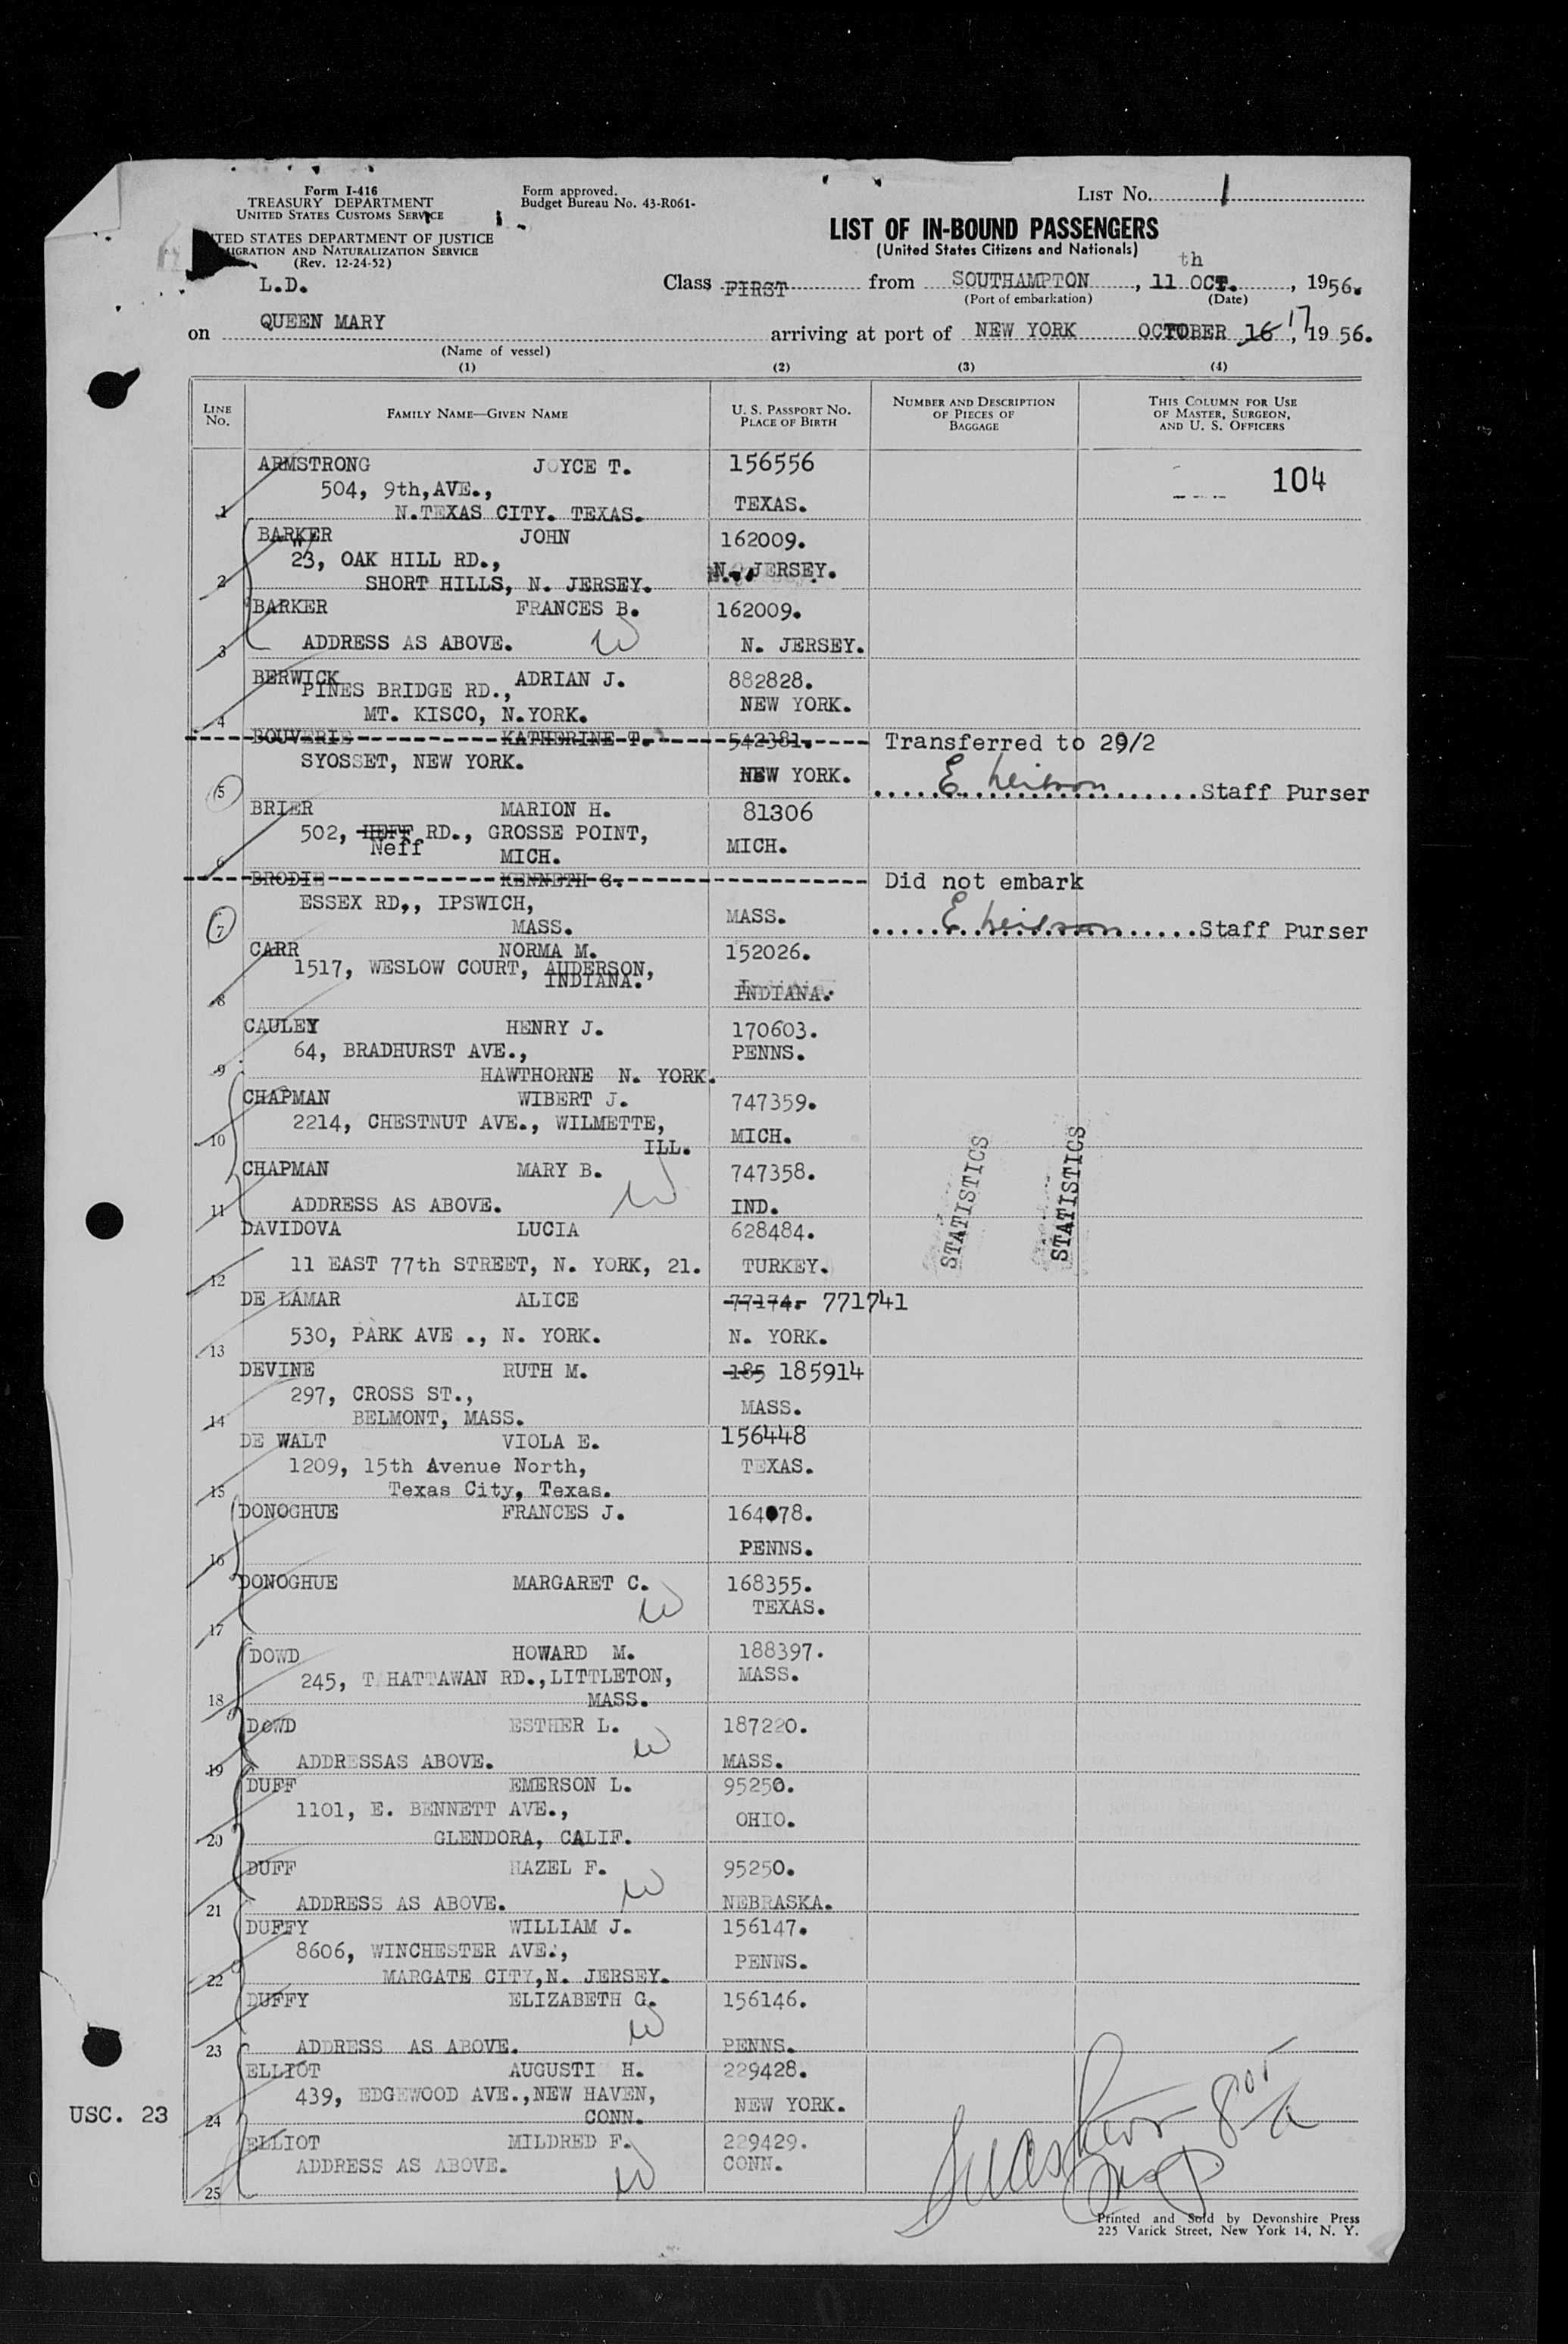 Form I-416
TREASURY DEPARTMENT
UNITED STATES CUSTOMS SERVICE
Form approved.
Budget Bureau No. 43-R061-
LIST No. 1
TED STATES DEPARTMENT OF JUSTICE
MIGRATION AND NATURALIZATION SERVICE
(Rev. 12-24-52)
LIST OF IN-BOUND PASSENGERS
(United States Citizens and Nationals)
L.D.
Class FIRST from SOUTHAMPTON, 11 th OCT., 1956.
(Port of embarkation) (Date)
on QUEEN MARY arriving at port of NEW YORK OCTOBER 16 17, 1956.
(Name of vessel)
(1) (2) (3) (4)
LINE No. FAMILY NAME—GIVEN NAME U. S. PASSPORT NO. PLACE OF BIRTH NUMBER AND DESCRIPTION OF PIECES OF BAGGAGE THIS COLUMN FOR USE OF MASTER, SURGEON, AND U. S. OFFICERS
ARMSTRONG JOYCE T. 156556 104
504, 9th,AVE.,
1 N.TEXAS CITY. TEXAS. TEXAS.
BARKER JOHN 162009.
23, OAK HILL RD.,
2 SHORT HILLS, N. JERSEY. N. JERSEY.
BARKER FRANCES B. 162009.
3 ADDRESS AS ABOVE. N. JERSEY.
BERWICK ADRIAN J. 882828.
PINES BRIDGE RD., NEW YORK.
4 MT. KISCO, N.YORK.
BOUVERIE KATHERINE T. 542381. Transferred to 29/2
SYOSSET, NEW YORK. NEW YORK.
5 E Neilson Staff Purser
BRIER MARION H. 81306
502, HEFF RD., GROSSE POINT,
6 Neff MICH. MICH.
BRODIE KENNETH G. Did not embark
ESSEX RD,, IPSWICH,
7 MASS. MASS. E Neilson Staff Purser
CARR NORMA M. 152026.
1517, WESLOW COURT, AUDERSON,
8 INDIANA. INDIANA.
CAULEY HENRY J. 170603.
64, BRADHURST AVE., PENNS.
9 HAWTHORNE N. YORK.
CHAPMAN WIBERT J. 747359.
2214, CHESTNUT AVE., WILMETTE,
10 ILL. MICH.
CHAPMAN MARY B. 747358.
11 ADDRESS AS ABOVE. IND.
STATISTICS STATISTICS
DAVIDOVA LUCIA 628484.
12 11 EAST 77th STREET, N. YORK, 21. TURKEY.
DE LAMAR ALICE 77174. 771741
13 530, PARK AVE ., N. YORK. N. YORK.
DEVINE RUTH M. 185 185914
297, CROSS ST.,
14 BELMONT, MASS. MASS.
DE WALT VIOLA E. 156448
1209, 15th Avenue North, TEXAS.
15 Texas City, Texas.
DONOGHUE FRANCES J. 164078.
16 PENNS.
DONOGHUE MARGARET C. 168355.
17 TEXAS.
DOWD HOWARD M. 188397.
245, T HATTAWAN RD.,LITTLETON, MASS.
18 MASS.
DOWD ESTHER L. 187220.
19 ADDRESSAS ABOVE. MASS.
DUFF EMERSON L. 95250.
1101, E. BENNETT AVE., OHIO.
20 GLENDORA, CALIF.
DUFF HAZEL F. 95250.
21 ADDRESS AS ABOVE. NEBRASKA.
DUFFY WILLIAM J. 156147.
8606, WINCHESTER AVE., PENNS.
22 MARGATE CITY,N. JERSEY.
DUFFY ELIZABETH G. 156146.
23 ADDRESS AS ABOVE. PENNS.
ELLIOT AUGUSTI H. 229428.
439, EDGEWOOD AVE.,NEW HAVEN, NEW YORK.
USC. 23 24 CONN.
ELLIOT MILDRED F. 229429.
25 ADDRESS AS ABOVE. CONN.
Printed and Sold by Devonshire Press
225 Varick Street, New York 14, N. Y.